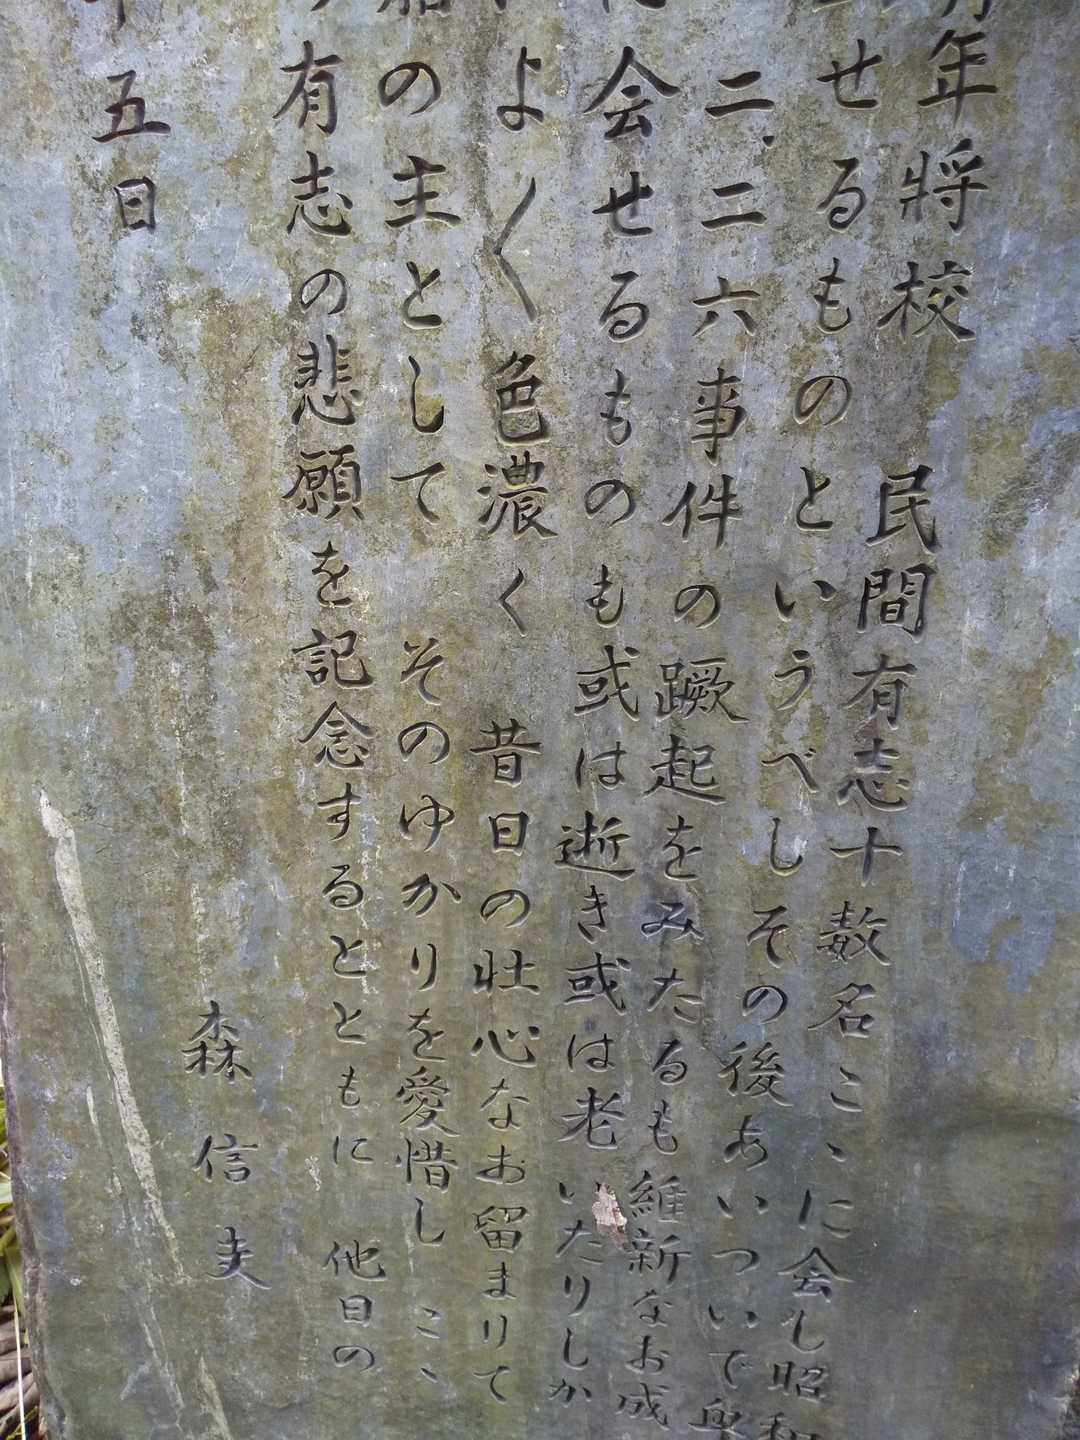 年将校　民間有志十数名こゝに会し昭和
せるものというべし　その後あいついで興
二.二六事件の蹶起をみたるも維新なお成
会せるものも或は逝き或は老いたりしか
よ〱色濃く　昔日の壮心なお留まりて
の主として　そのゆかりを愛惜し　こゝ
有志の悲願を記念するとともに　他日の
森　信　夫
五日